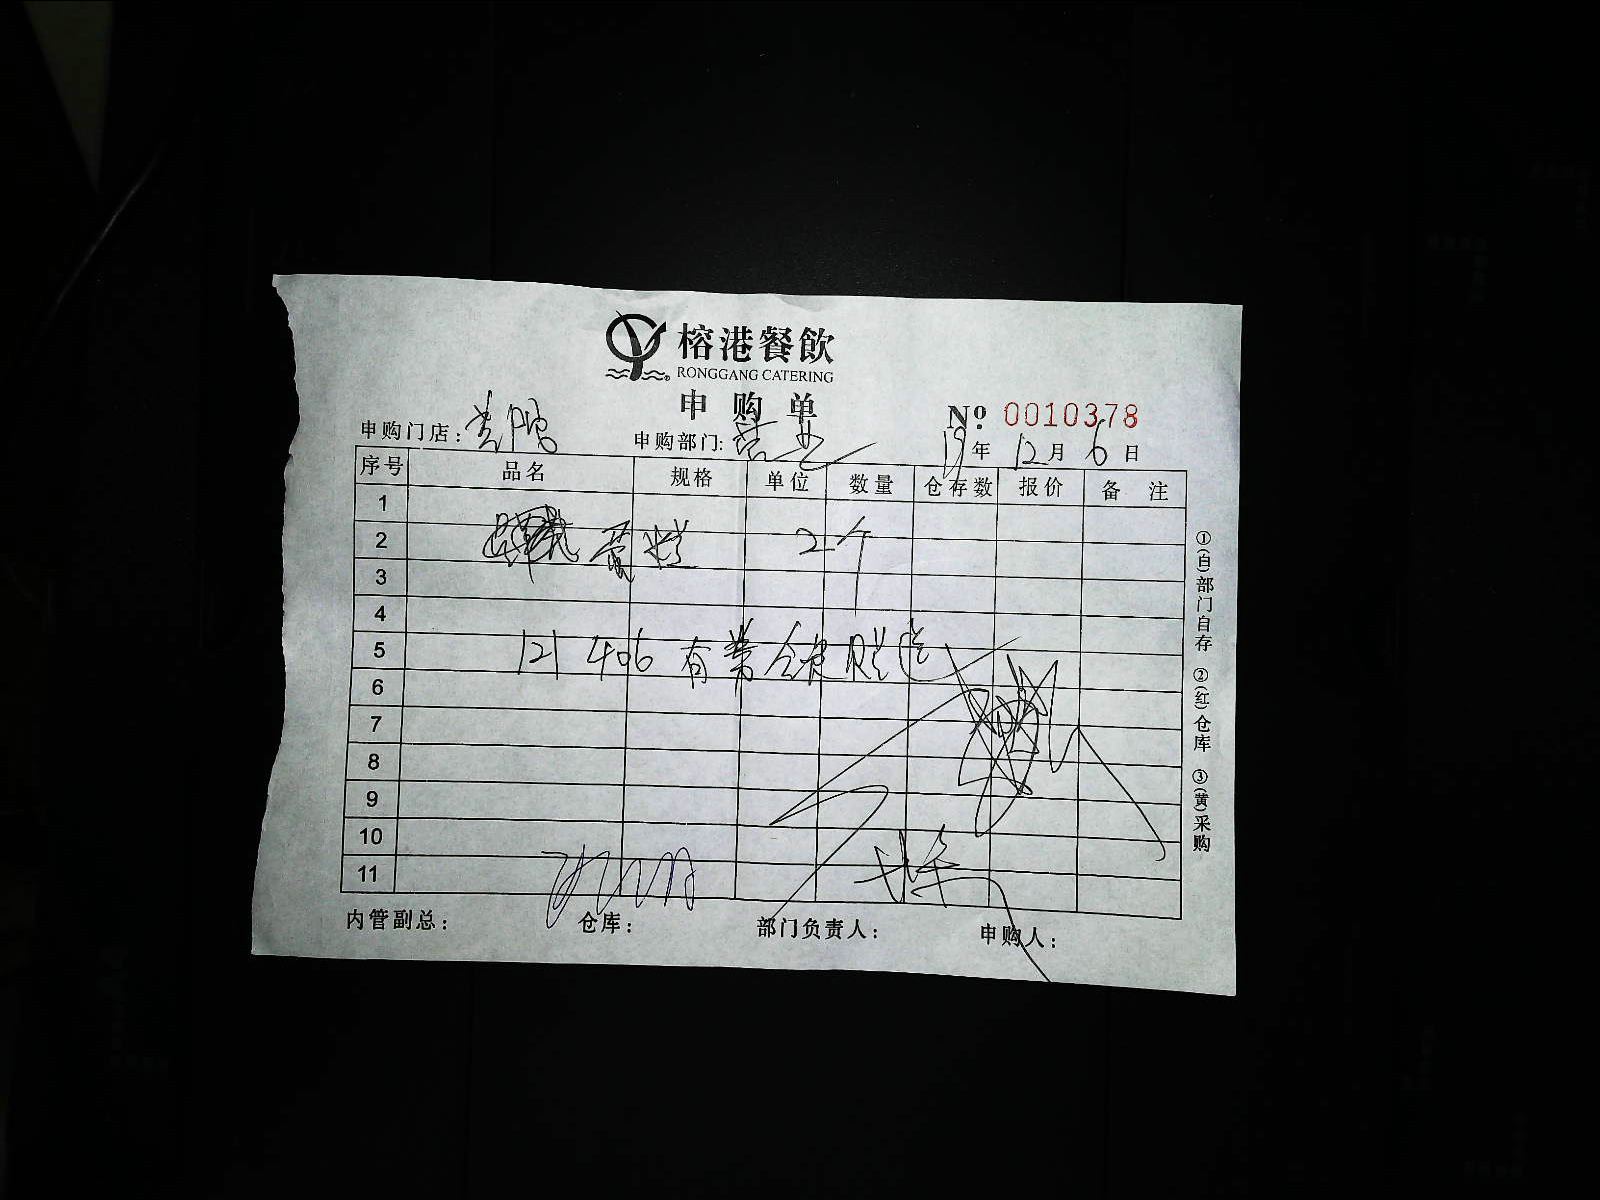 榕港餐飲
RONGGANG CATERING
申购单
№ 0010378
申购门店: 申购部门: 营业 19年 12月 6日
序号 品名 规格 单位 数量 仓存数 报价 备注
1
2 2个
3
4
5 121 406 有 赠送
6
7
8
9
10
11
内管副总: 仓库: 部门负责人: 申购人:
①(白)部门自存 ②(红)仓库 ③(黄)采购